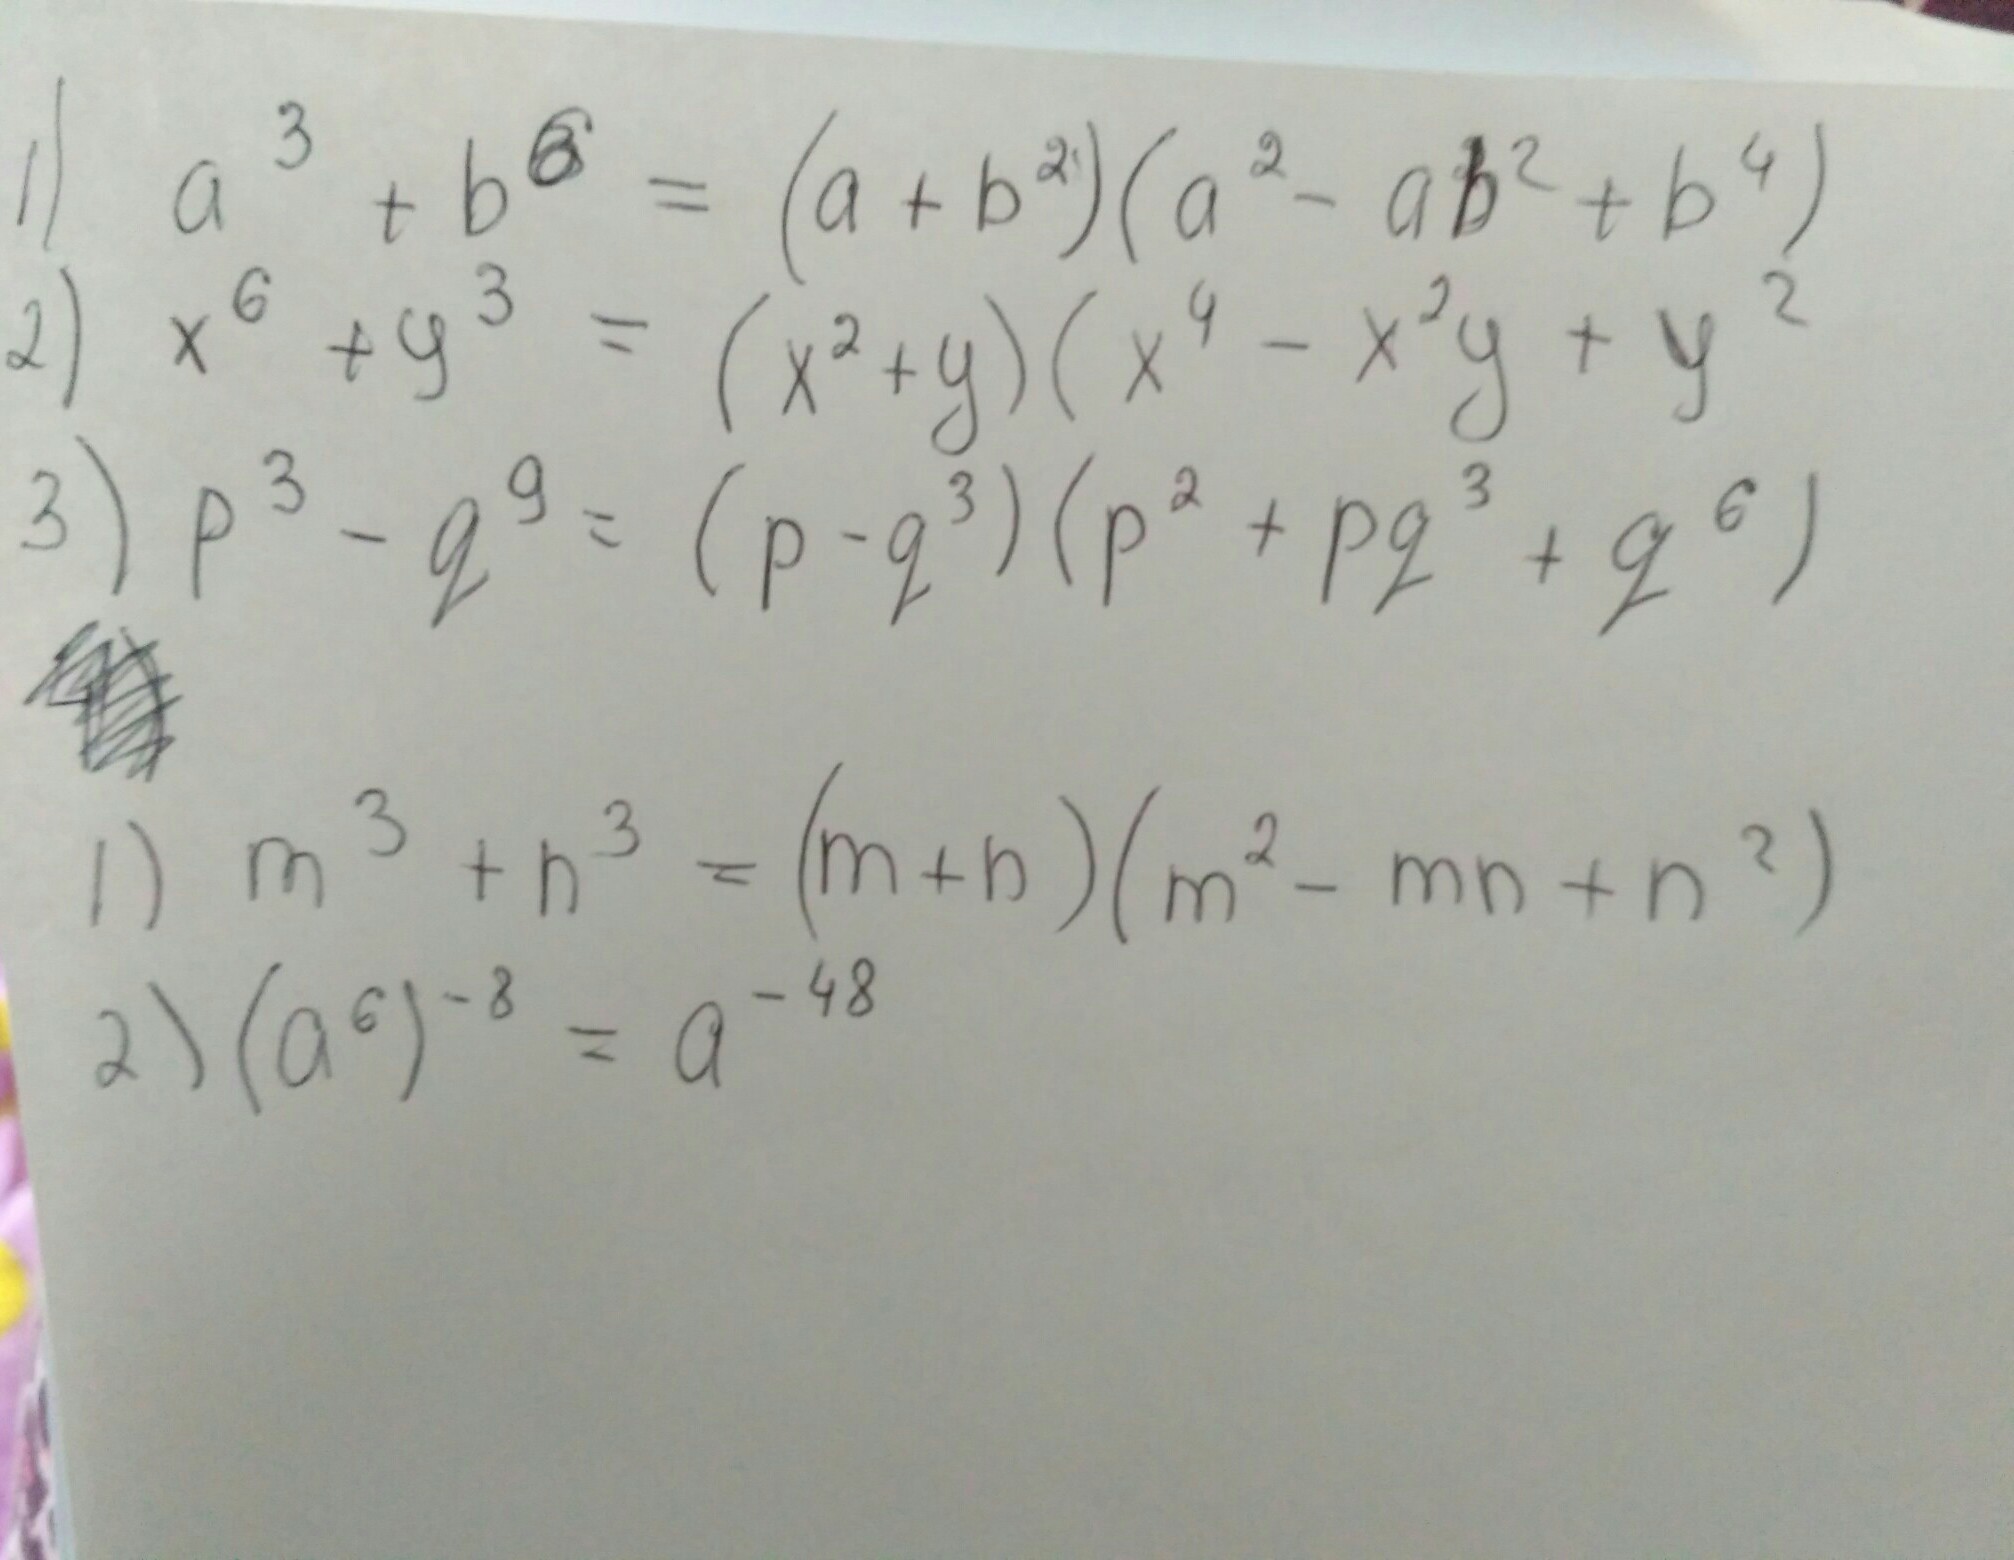 1) a³ + b⁶ = (a + b²)(a² - ab² + b⁴)
2) x⁶ + y³ = (x² + y)(x⁴ - x²y + y²
3) p³ - q⁹ = (p - q³)(p² + pq³ + q⁶)
1) m³ + n³ = (m + n)(m² - mn + n²)
2) (a⁶)⁻⁸ = a⁻⁴⁸